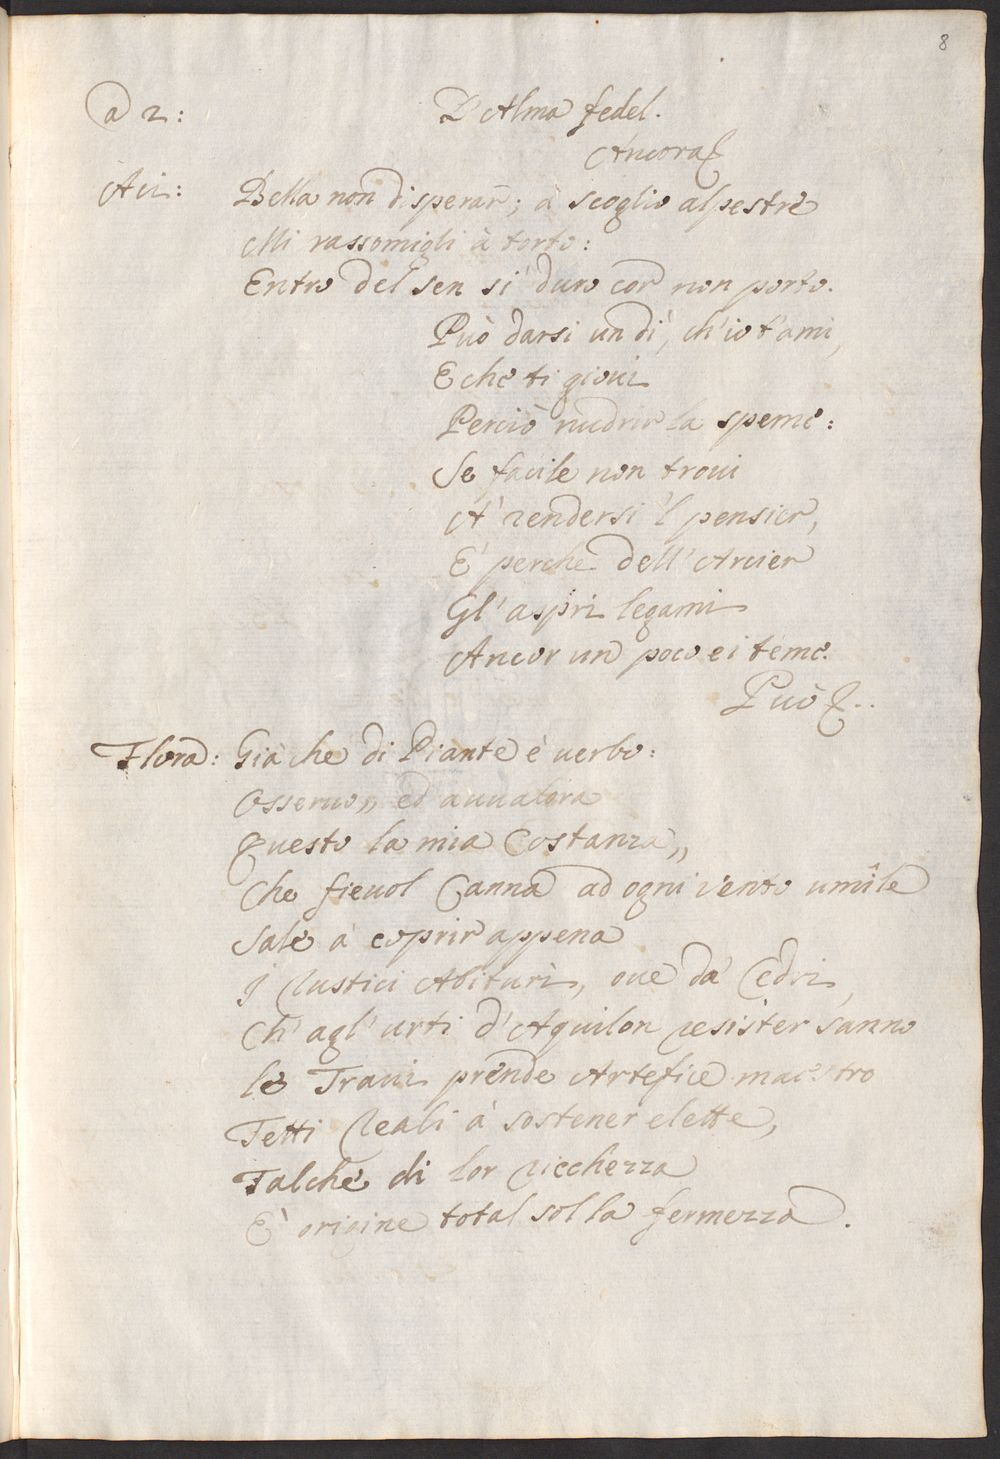 8
a 2: D'Alma fedel.
Ancora &
Aci: Bella non disperar; à scoglio alpestre
Mi rassomigli à torto:
Entro del sen si duro cor non porto.
Può darsi un dì, ch'io t'ami,
E che ti gioui
Perciò nudrir la speme:
Se facile non troui
A' rendersi 'l pensier,
E' perche dell'Arcier
Gl'aspri legami
Ancor un poco ei teme.
Può &..
Flora: Già che di Piante è uerbo:
Osseruo,, ed auualora
Questo la mia Costanza,,
Che fieuol Canna ad ogni vento umîle
Sale à coprir appena
I Rustici Abituri, oue da Cedri,
Ch'agl'urti d'Aquilon resister sanno
le Traui prende Artefice maestro
Tetti Reali à sostener elette,
Talche di lor ricchezza
E' origine total sol la fermezza.